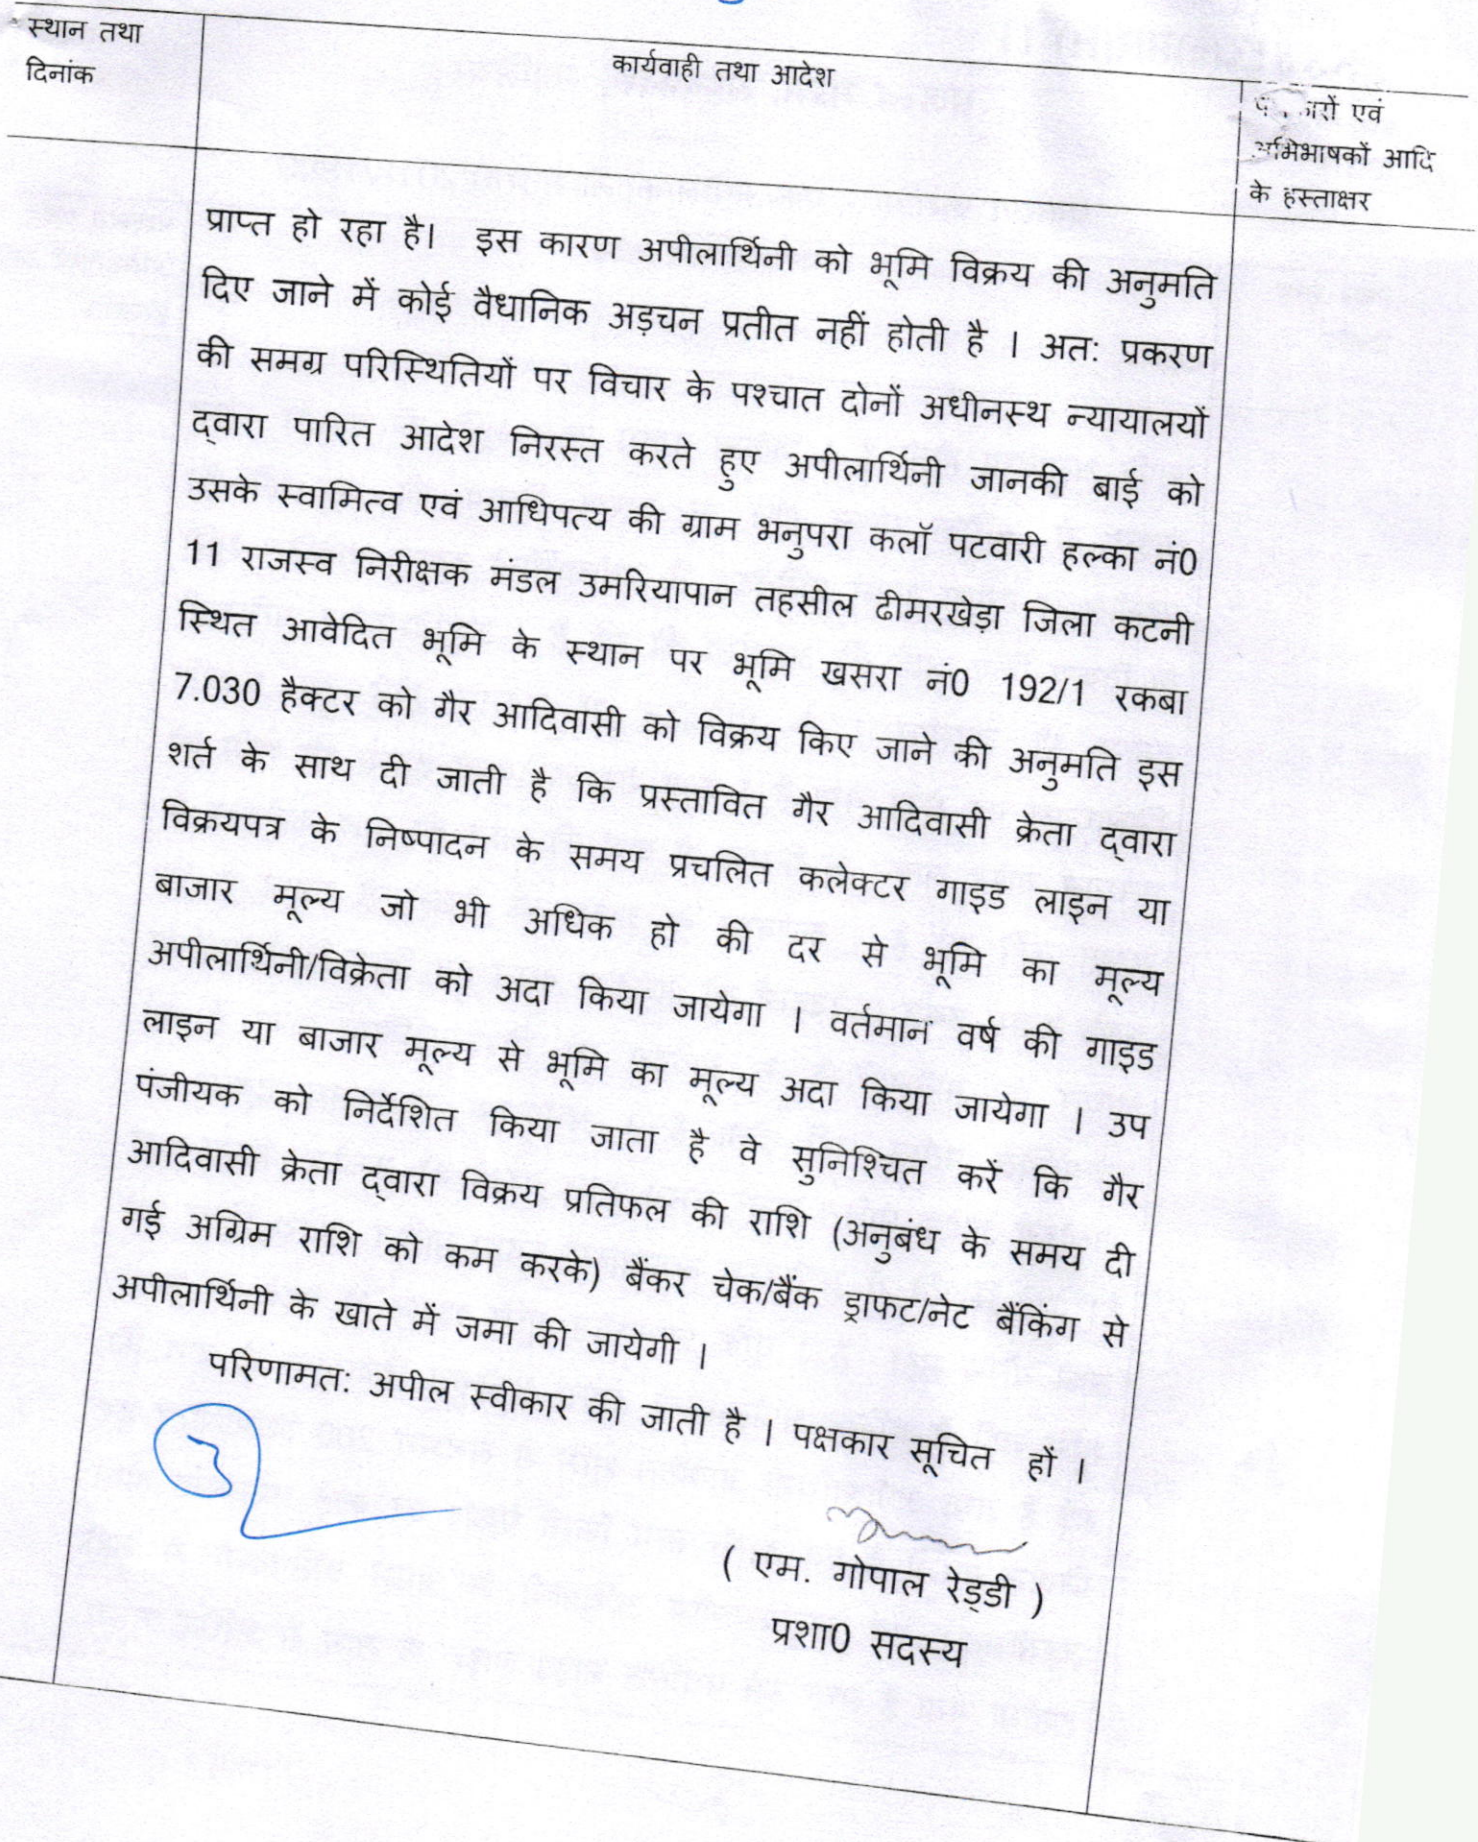 स्थान तथा
दिनांक
कार्यवाही तथा आदेश
एवं
अभिभाषकों आदि
के हस्ताक्षर
प्राप्त हो रहा है। इस कारण अपीलार्थिनी को भूमि विक्रय की अनुमति
दिए जाने में कोई वैधानिक अड़चन प्रतीत नहीं होती है । अत: प्रकरण
की समग्र परिस्थितियों पर विचार के पश्चात दोनों अधीनस्थ न्यायालयों
द्वारा पारित आदेश निरस्त करते हुए अपीलार्थिनी जानकी बाई को
उसके स्वामित्व एवं आधिपत्य की ग्राम भनुपरा कलॉ पटवारी हल्का नं0
11 राजस्व निरीक्षक मंडल उमरियापान तहसील ढीमरखेड़ा जिला कटनी
स्थित आवेदित भूमि के स्थान पर भूमि खसरा नं0 192/1 रकबा
7.030 हैक्टर को गैर आदिवासी को विक्रय किए जाने की अनुमति इस
शर्त के साथ दी जाती है कि प्रस्तावित गैर आदिवासी क्रेता द्वारा
विक्रयपत्र के निष्पादन के समय प्रचलित कलेक्टर गाइड लाइन या
बाजार मूल्य जो भी अधिक हो की दर से भूमि का मूल्य
अपीलार्थिनी/विक्रेता को अदा किया जायेगा । वर्तमान वर्ष की गाइड
लाइन या बाजार मूल्य से भूमि का मूल्य अदा किया जायेगा । उप
पंजीयक को निर्देशित किया जाता है वे सुनिश्चित करें कि गैर
आदिवासी क्रेता द्वारा विक्रय प्रतिफल की राशि (अनुबंध के समय दी
गई अग्रिम राशि को कम करके) बैंकर चेक/बैंक ड्राफट/नेट बैंकिंग से
अपीलार्थिनी के खाते में जमा की जायेगी ।
परिणामत: अपील स्वीकार की जाती है । पक्षकार सूचित हों ।
( एम. गोपाल रेड्डी )
प्रशा0 सदस्य